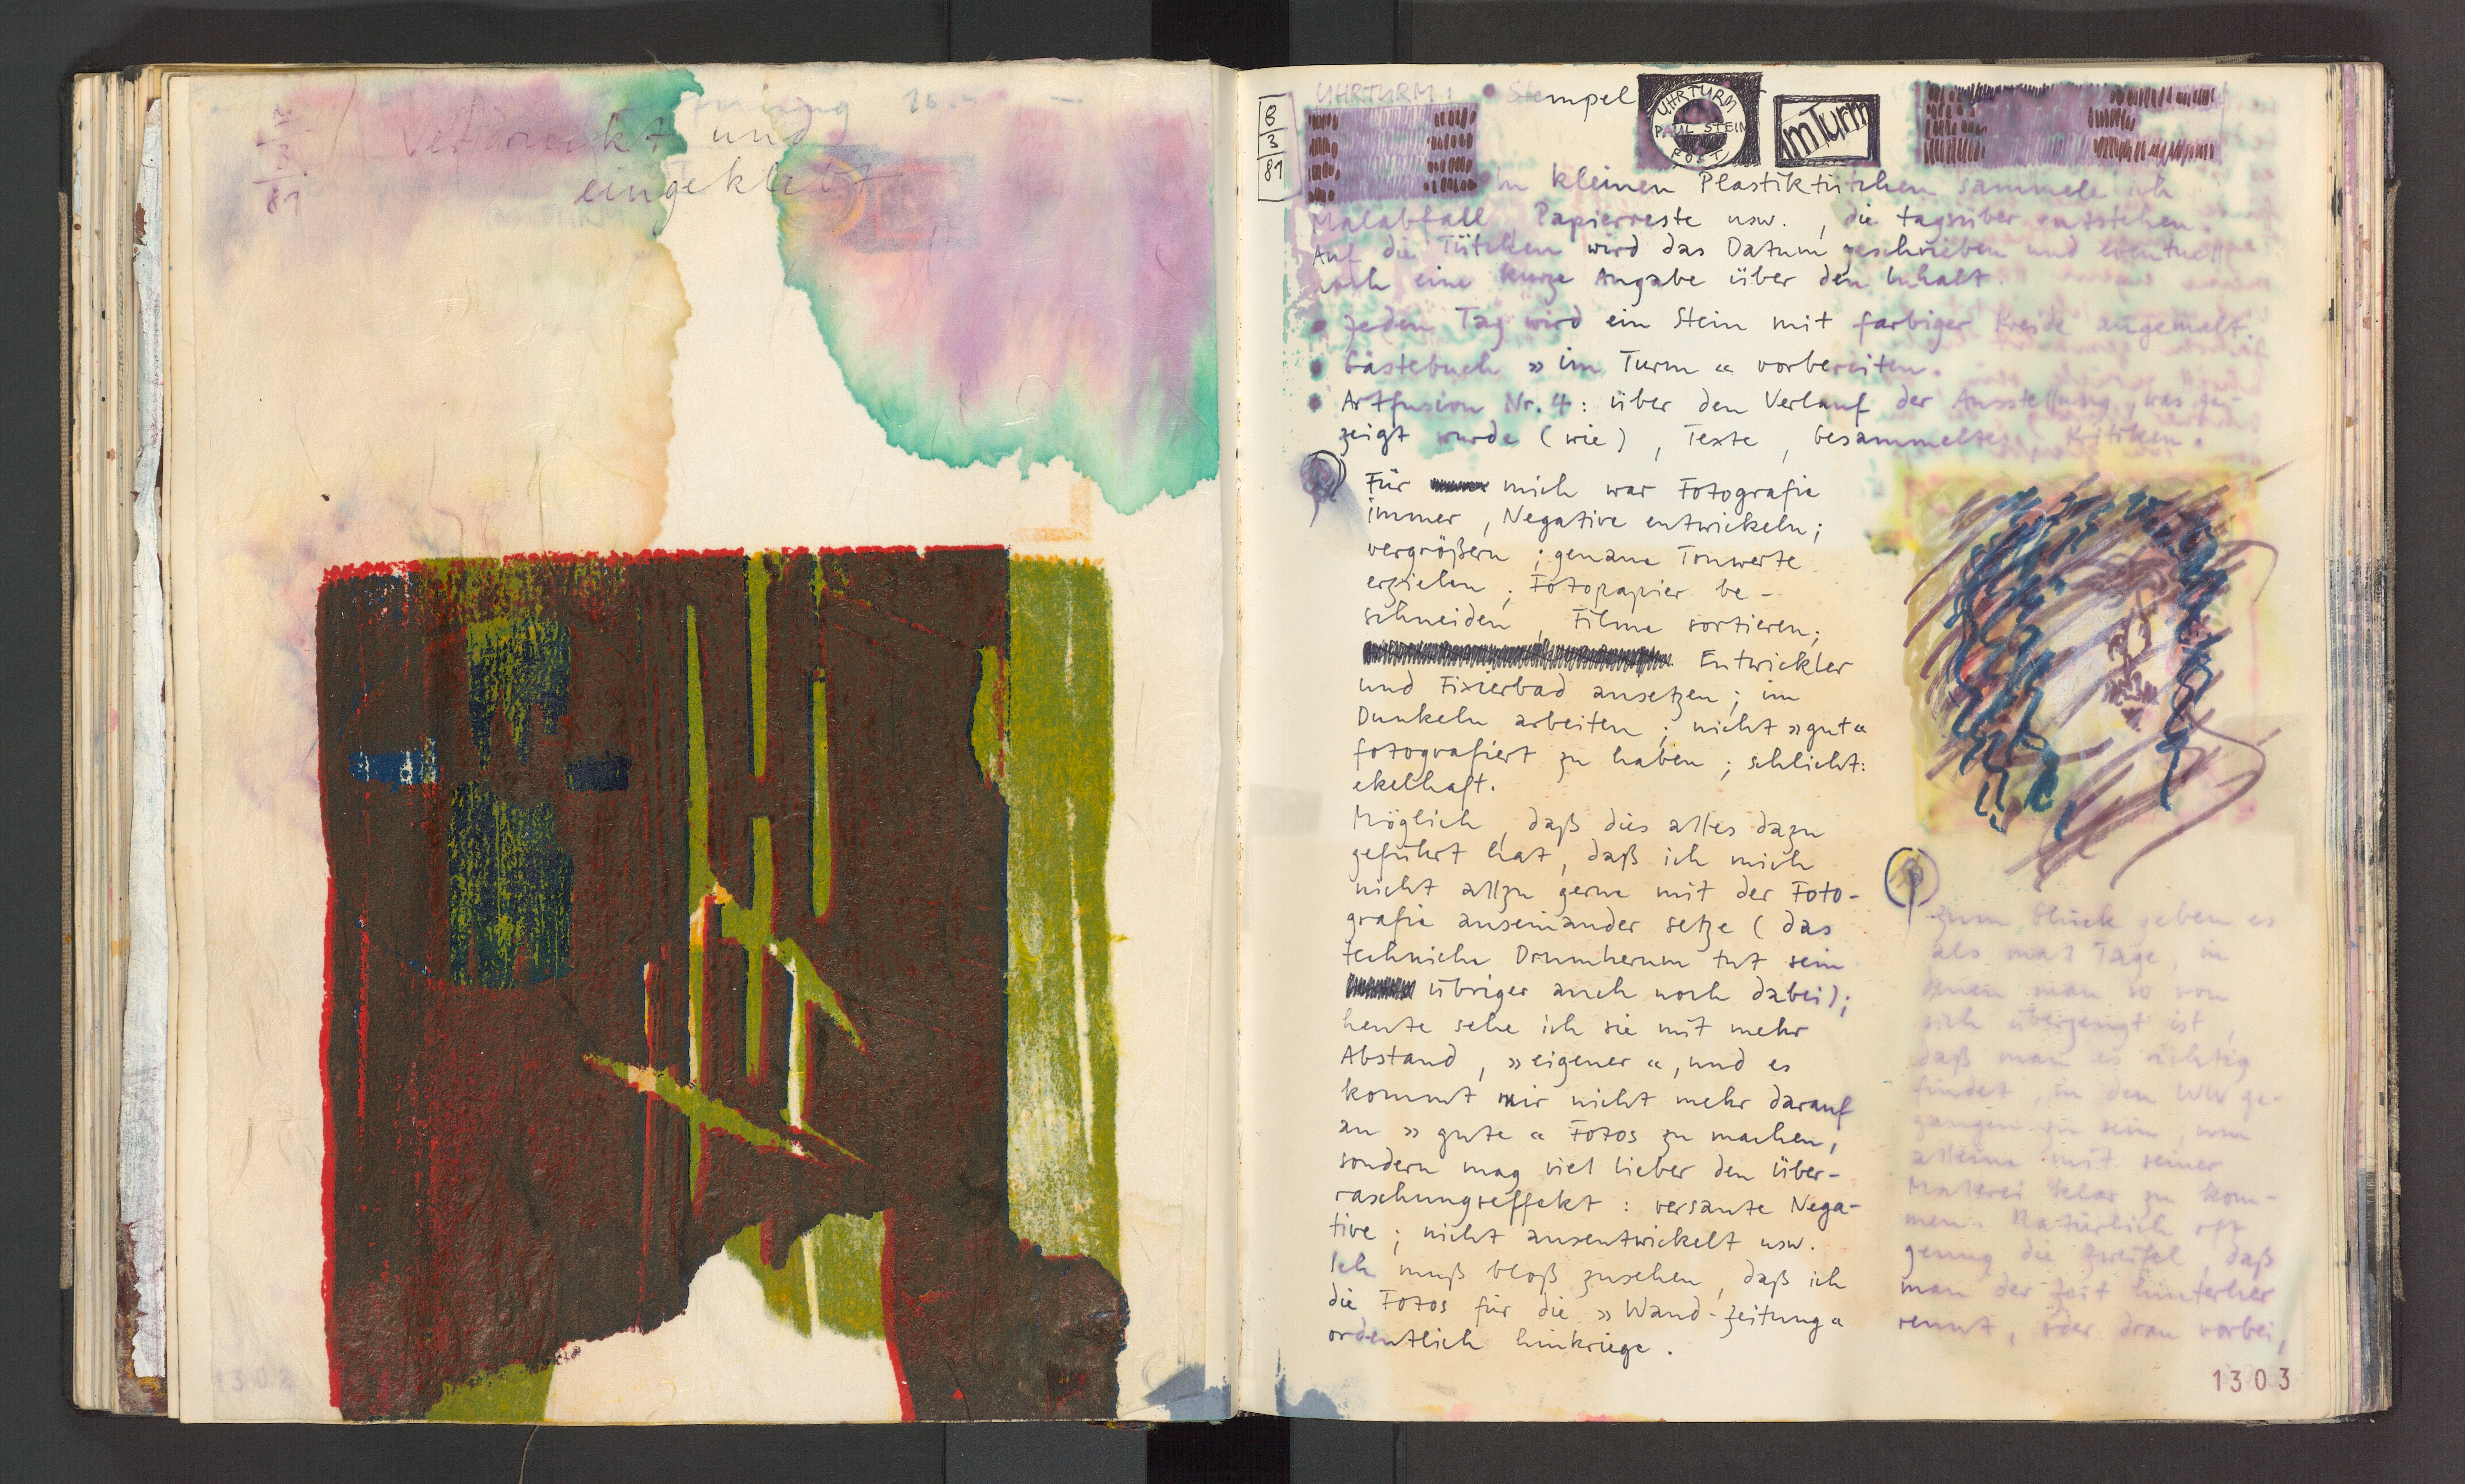 verdruckt und
eingeklebt
1302
8
3
81
UHRTURM : Stempel
UHRTURM
PAUL STEIN
POST
im Turm
In kleinen Plastiktütchen sammele ich
Malabfall Papierreste usw. , die tagsüber entstehen.
Auf die Tütchen wird das Datum geschrieben und eventuell
noch eine kurze Angabe über den Inhalt.
jeden Tag wird ein Stein mit farbiger Kreide angemalt.
Gästebuch » im Turm « vorbereiten.
Artfusion Nr. 4 : über den Verlauf der Ausstellung, was ge-
zeigt wurde (wie) , Texte , Gesammeltes, Kritiken.
Für mich war Fotografie
immer , Negative entwickeln ;
vergrößern ; genaue Tonwerte
erzielen ; Fotopapier be-
schneiden , Filme sortieren ;
Entwickler
und Fixierbad ansetzen ; im
Dunkeln arbeiten ; nicht » gut «
fotografiert zu haben ; schlicht :
ekelhaft.
Möglich , daß dies alles dazu
geführt hat , daß ich mich
nicht allzu gerne mit der Foto-
grafie auseinander setze ( das
techniche Drumherum tut sein
übriger auch noch dabei) ;
heute sehe ich sie mit mehr
Abstand , » eigener « , und es
kommt mir nicht mehr darauf
an » gute « Fotos zu machen ,
sondern mag viel lieber den Über-
raschungseffekt : versaute Nega-
tive ; nicht ausentwickelt usw.
Ich muß bloß zusehen , daß ich
die Fotos für die » Wand-zeitung «
ordentlich hinkriege .
zum Glück geben es
als mal Tage , in
denen man so von
sich überzeugt ist ,
daß man es richtig
findet , in den WW ge-
gangen zu sein , um
alleine mit seiner
Malerei klar zu kom-
men. Natürlich oft
genug die Zweifel , daß
man der Zeit hinterher
rennt , oder dran vorbei ,
1303